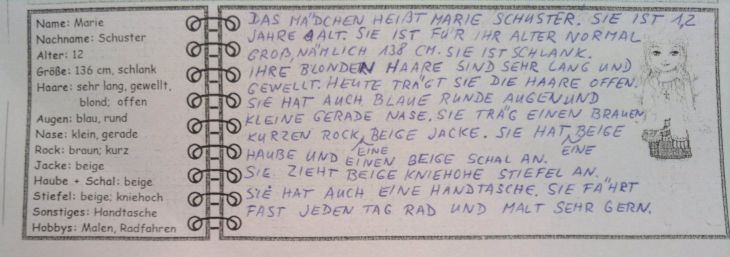 Name: Marie
Nachname: Schuster
Alter: 12
Größe: 136 cm, schlank
Haare: sehr lang, gewellt,
blond; offen
Augen: blau, rund
Nase: klein, gerade
Rock: braun; kurz
Jacke: beige
Haube + Schal: beige
Stiefel: beige; kniehoch
Sonstiges: Handtasche
Hobbys: Malen, Radfahren
DAS MÄDCHEN HEIßT MARIE SCHUSTER. SIE IST 1,2
JAHRE ALT. SIE IST FÜR IHR ALTER NORMAL
GROß, NÄMLICH 138 CM. SIE IST SCHLANK.
IHRE BLONDEN HAARE SIND SEHR LANG UND
GEWELLT. HEUTE TRÄGT SIE DIE HAARE OFFEN.
SIE HAT AUCH BLAUE RUNDE AUGEN UND
KLEINE GERADE NASE. SIE TRÄG EINEN BRAUEN,
KURZEN ROCK, BEIGE JACKE. SIE HAT BEIGE
EINE EINE
HAUBE UND EINEN BEIGE SCHAL AN.
SIE ZIEHT BEIGE KNIEHOHE STIEFEL AN.
SIE HAT AUCH EINE HANDTASCHE. SIE FÄHRT
FAST JEDEN TAG RAD UND MALT SEHR GERN.